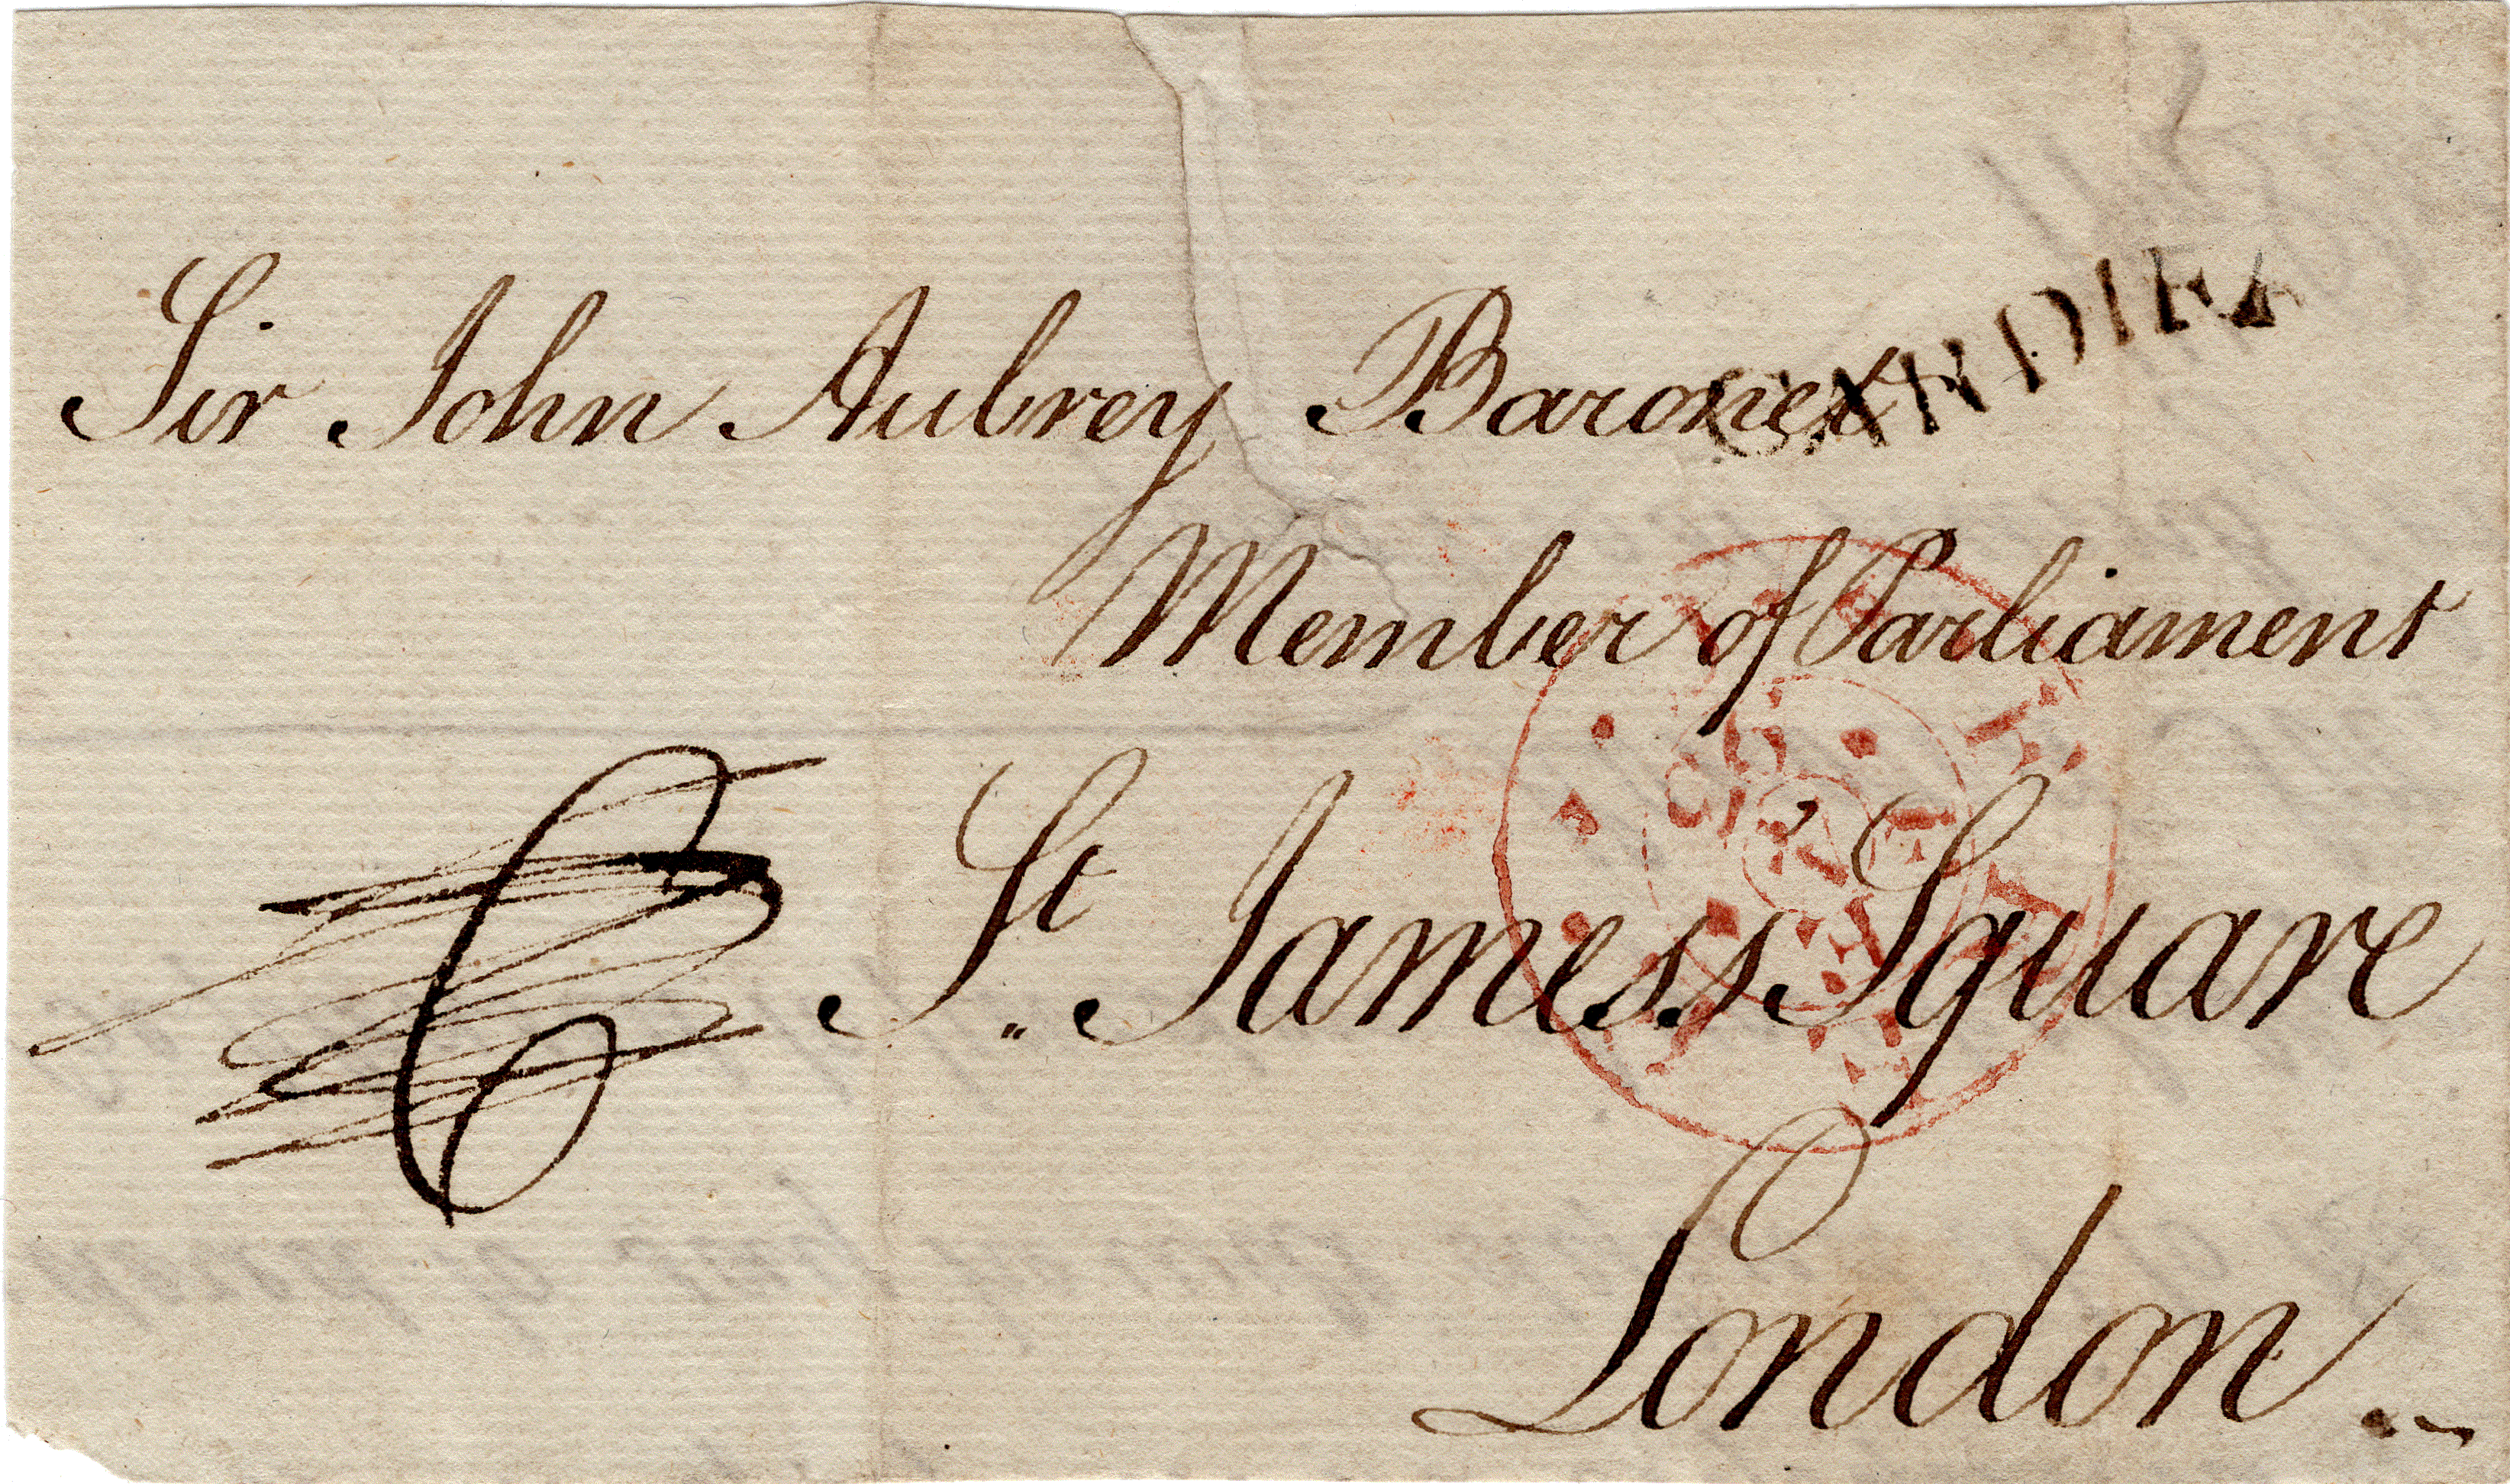 Sir John Aubrey Baronet
CARDIFF
Member of Parliament
6
St. James's Square
London